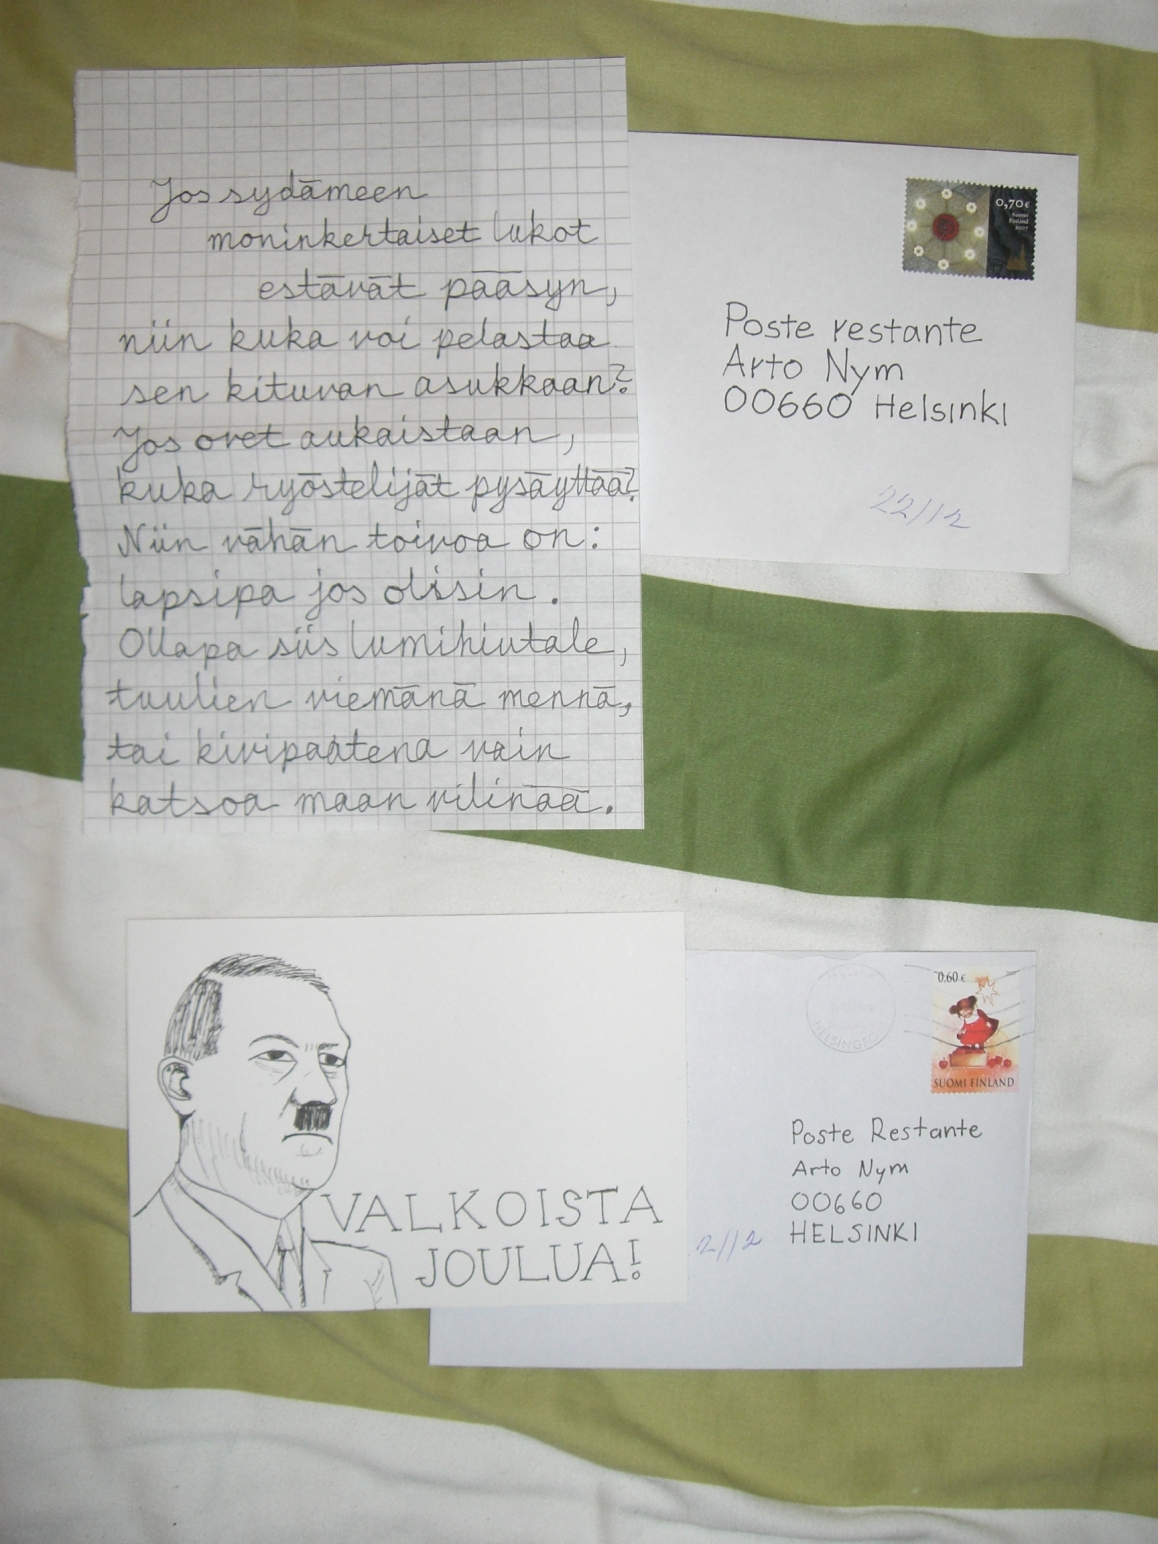 Jos sydämeen
moninkertaiset lukot
estävät pääsyn,
niin kuka voi pelastaa
sen kituvan asukkaan?
Jos ovet aukaistaan,
kuka ryöstelijät pysäyttää?
Niin vähän toivoa on:
lapsipa jos olisin.
Ollapa siis lumihiutale,
tuulien viemänä mennä,
tai kivipaatena vain
katsoa maan vilinää.
0,70€
Suomi
Finland
2007
Poste restante
Arto Nym
00660 Helsinki
22/12
VALKOISTA
JOULUA!
HELSINGFORS
0.60 €
SUOMI FINLAND
Poste Restante
Arto Nym
00660
HELSINKI
2/12